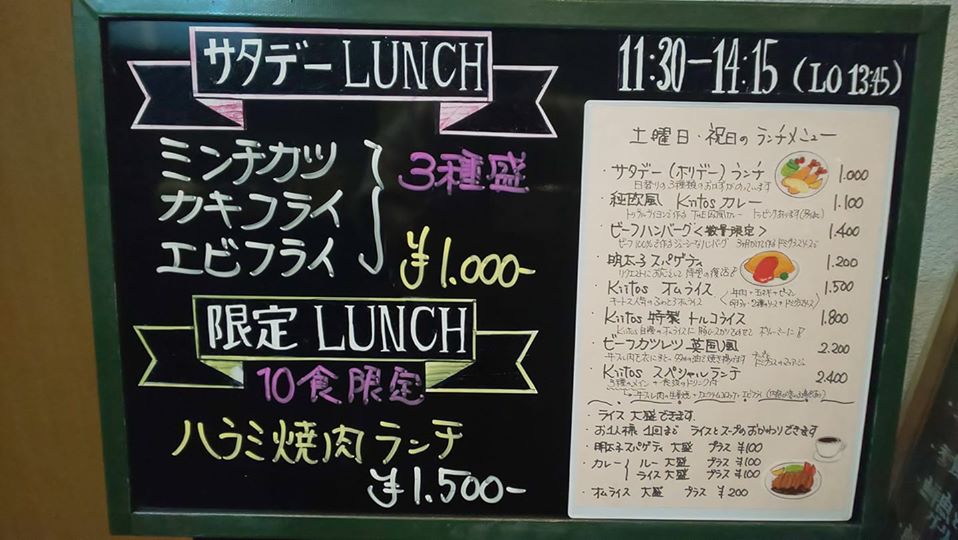 サタデー LUNCH
ミンチカツ
カキフライ
エビフライ
3種盛
¥1.000-
限定 LUNCH
10食限定
ハラミ焼肉ランチ
¥1.500-
11:30－14:15 (LO 13:45)
土曜日・祝日のランチメニュー
・サタデー（ホリデー）ランチ 1.000
日替りの3種類のおかずがのっています
・純欧風 Kiitos カレー 1.100
・ビーフハンバーグ＜数量限定＞ 1.400
・明太子スパゲティ 1.200
・Kiitos オムライス 1.500
・Kiitos 特製 トルコライス 1.800
・ビーフカツレツ 英国風 2.200
・Kiitos スペシャルランチ 2.400
・ライス 大盛できます
・お1人様 1回まで ライスとスープのおかわりできます
・明太子スパゲティ 大盛 プラス ¥100
・カレー ルー 大盛 プラス ¥100
ライス 大盛 プラス ¥100
・オムライス 大盛 プラス ¥200